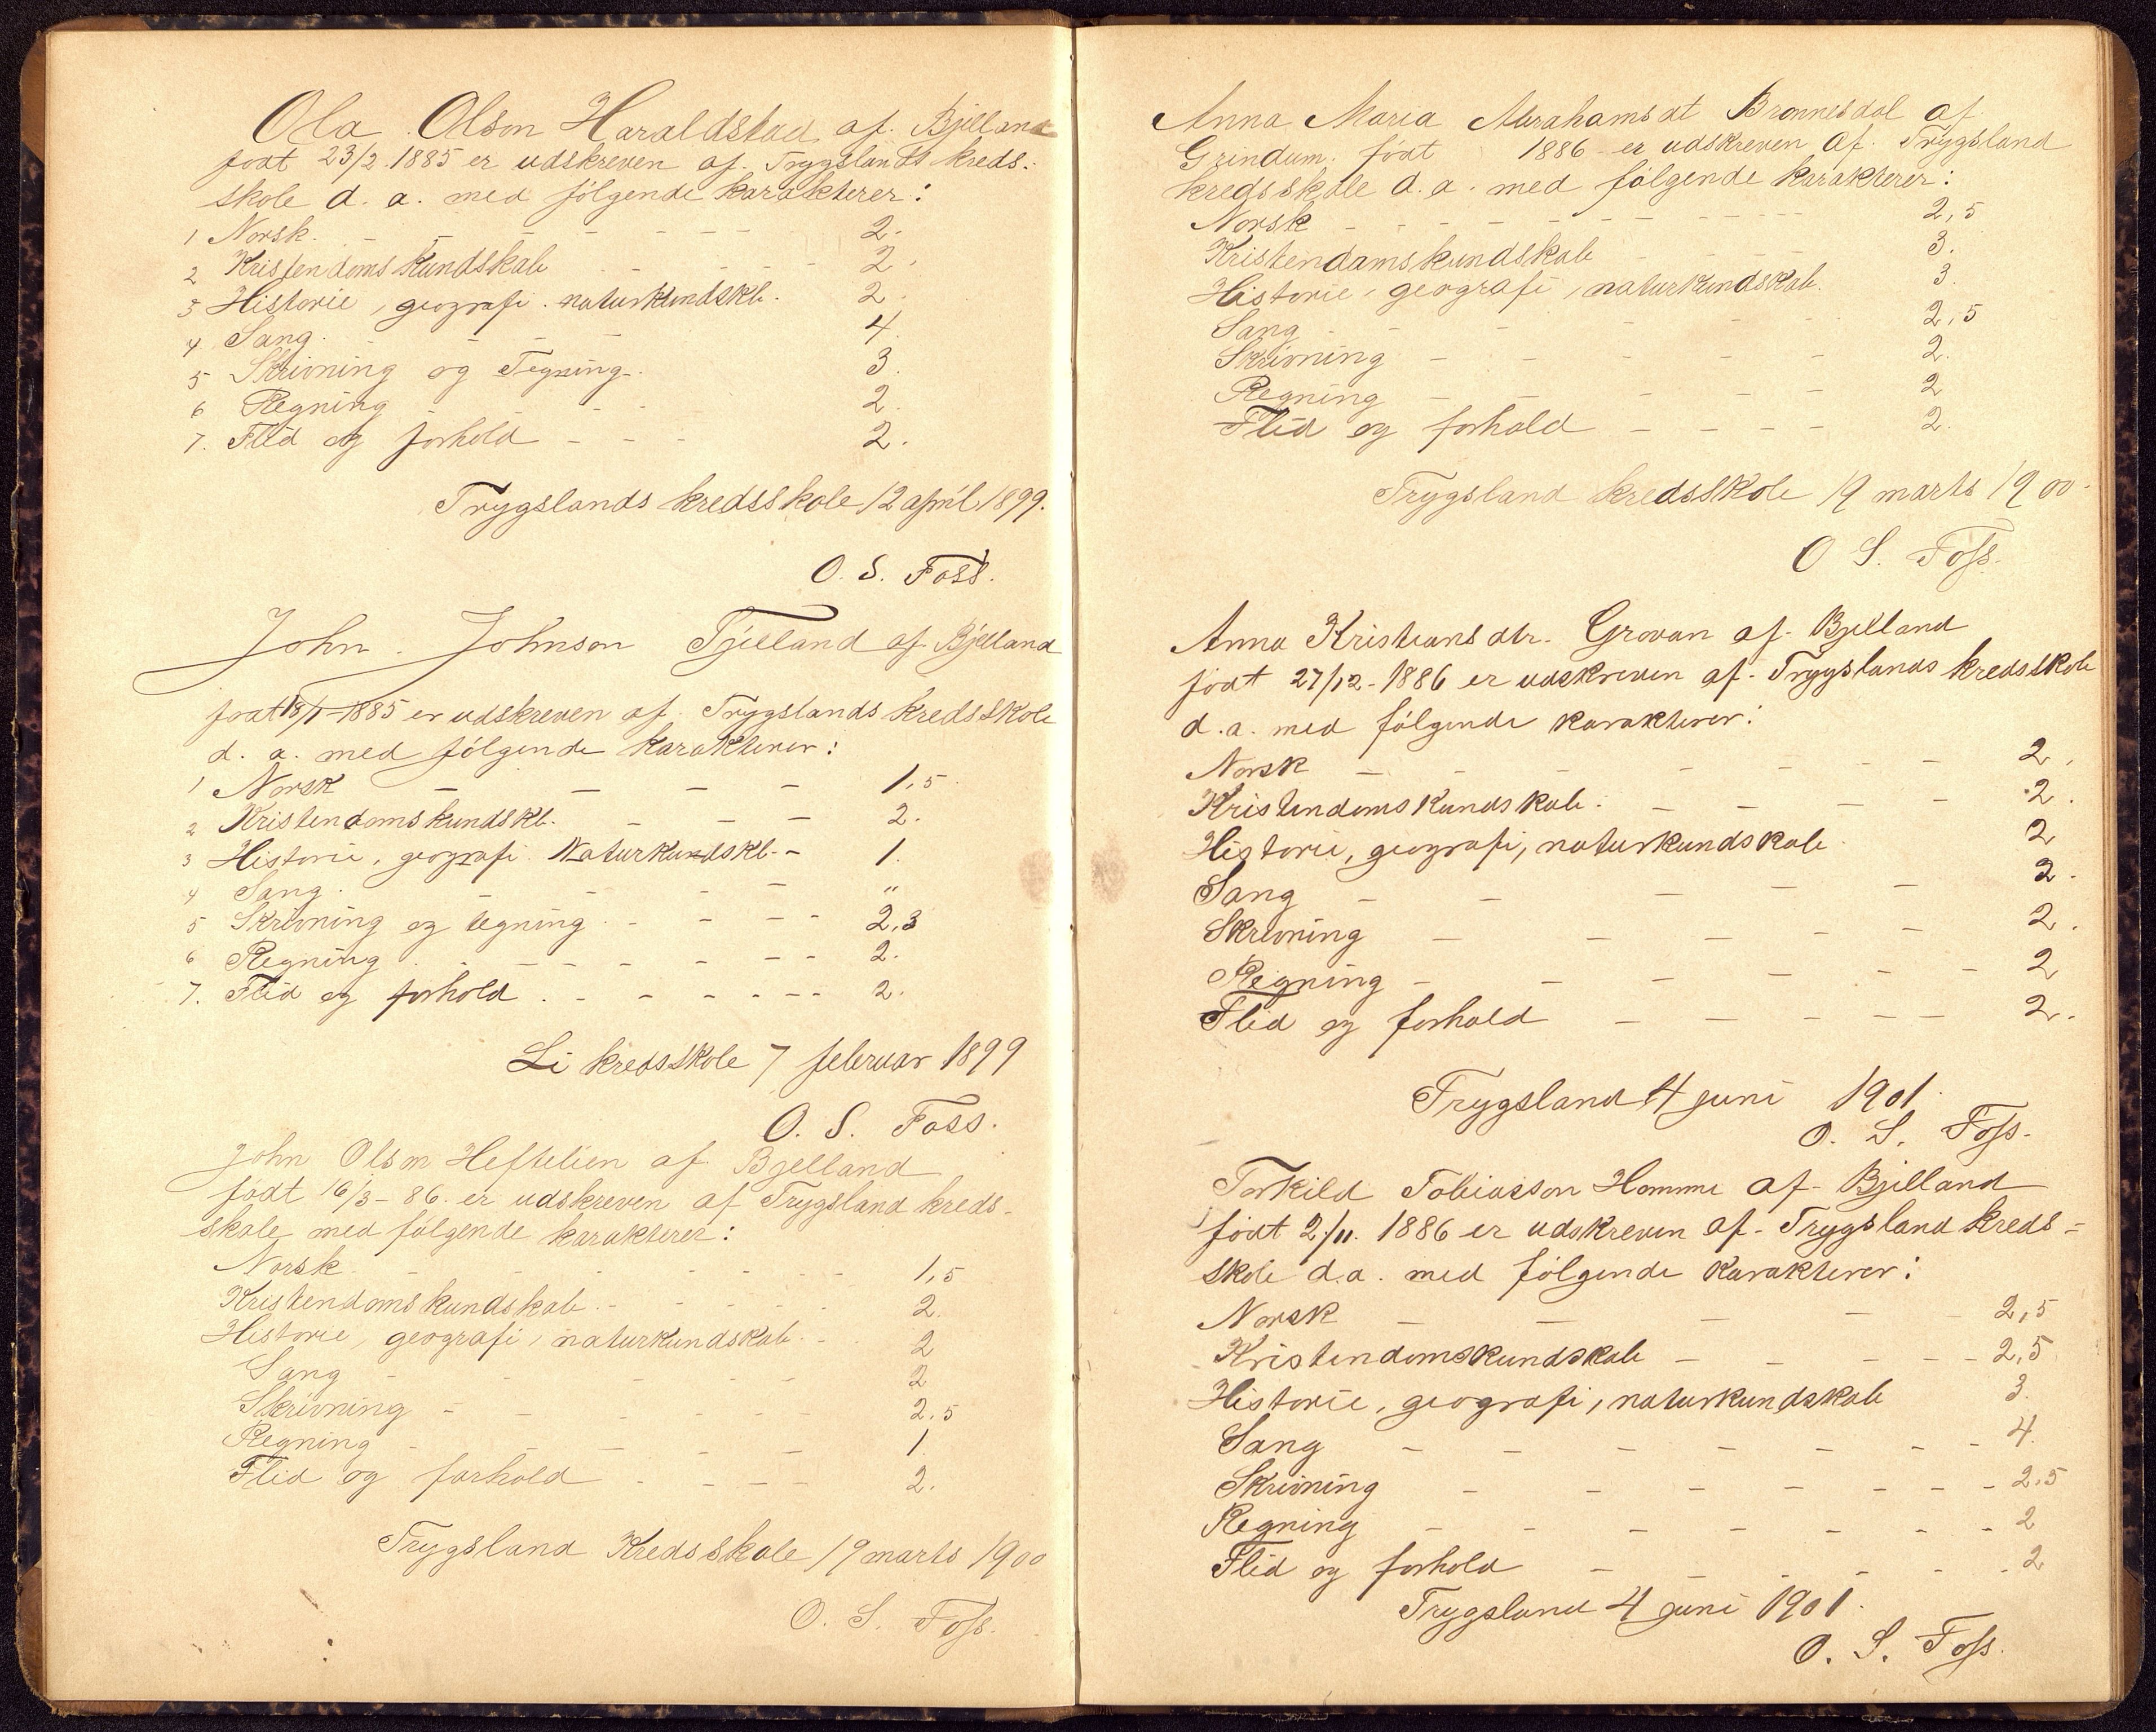 Ola Olson Haraldstad af Bjelland
født 23/2 1885 er udskreven af Trygslands kreds-
skole d. a. med følgende karakterer:
1 Norsk. - - - - - - 2.
2 Kristendomskundskab - - - - 2.
3 Historie, geografi. naturkundskb. 2.
4. Sang. - - - 4.
5 Skrivning og Tegning. 3.
6 Regning - - - 2.
7. Flid og forhold - - - 2.
Trygslands kredsskole 12 april 1899.
O. S. Foss.
John. Johnson Tjelland af Bjelland
født 18/1-1885 er udskreven af Trygslands kredsskole
d. a. med følgende karakterer:
1 Norsk - - - - 1,5
2 Kristendomskundskb. - - - 2.
3 Historie, geografi. Naturkundskb. - 1.
4 Sang. - - - - "
5 Skrivning og tegning. - - - - 2,3
6 Regning. - - - - - - - 2.
7. Flid og forhold. - - - - - - 2.
Li kredsskole 7 februar 1899
O. S. Foss.
John Olson Heftelien af Bjelland
født 16/3-86. er udskreven af Trygsland kreds-
skole med følgende karakterer:
Norsk - - - - - - 1,5
Kristendomskundskab. - - - - - 2.
Historie, geografi, naturkundskab. - 2
Sang - - - - - 2
Skrivning - - - - - - 2,5
Regning - - - - - 1.
Flid og forhold - - - - 2.
Trygsland Kredsskole 19 marts 1900
O. S. Foss.
Anna Maria Abrahamsdt Bronnesdal af
Grindum. født 1886 er udskreven af Trygsland
kredsskole d. a. med følgende karakterer:
Norsk - - - - - - - - 2,5
Kristendomskundskab - - - - 3.
Historie, geografi, naturkundskab. 3.
Sang - - - - - 2,5
Skrivning - - - - - 2.
Regning - - - - - 2
Flid og forhold - - - - 2.
Trygsland kredsskole 19 marts 1900.
O S. Foss.
Anna Kristiansdtr. Grovan af Bjelland
født 27/12-1886 er udskreven af Trygslands kredsskole
d. a. med følgende karakterer:
Norsk - - - - - - - 2.
Kristendomskundskab. - - - - 2.
Historie, geografi, naturkundskab. 2
Sang - - - - - 2.
Skrivning - - - - - - 2.
Regning - - - - - - 2
Flid og forhold - - - - - - 2.
Trygsland 4 juni 1901.
O. S. Foss.
Torkild Tobiasson Homme af Bjelland
født 2/11. 1886 er udskreven af Trygsland kreds-
skole d.a. med følgende karakterer:
Norsk - - - - - 2,5
Kristendomskundskab - - - - - 2,5
Historie, geografi, naturkundskab 3.
Sang - - - - - - - 4.
Skrivning - - - - - - - 2,5
Regning - - - - - - - 2
Flid og forhold - - - - - - 2
Trygsland 4 juni 1901.
O. S. Foss.